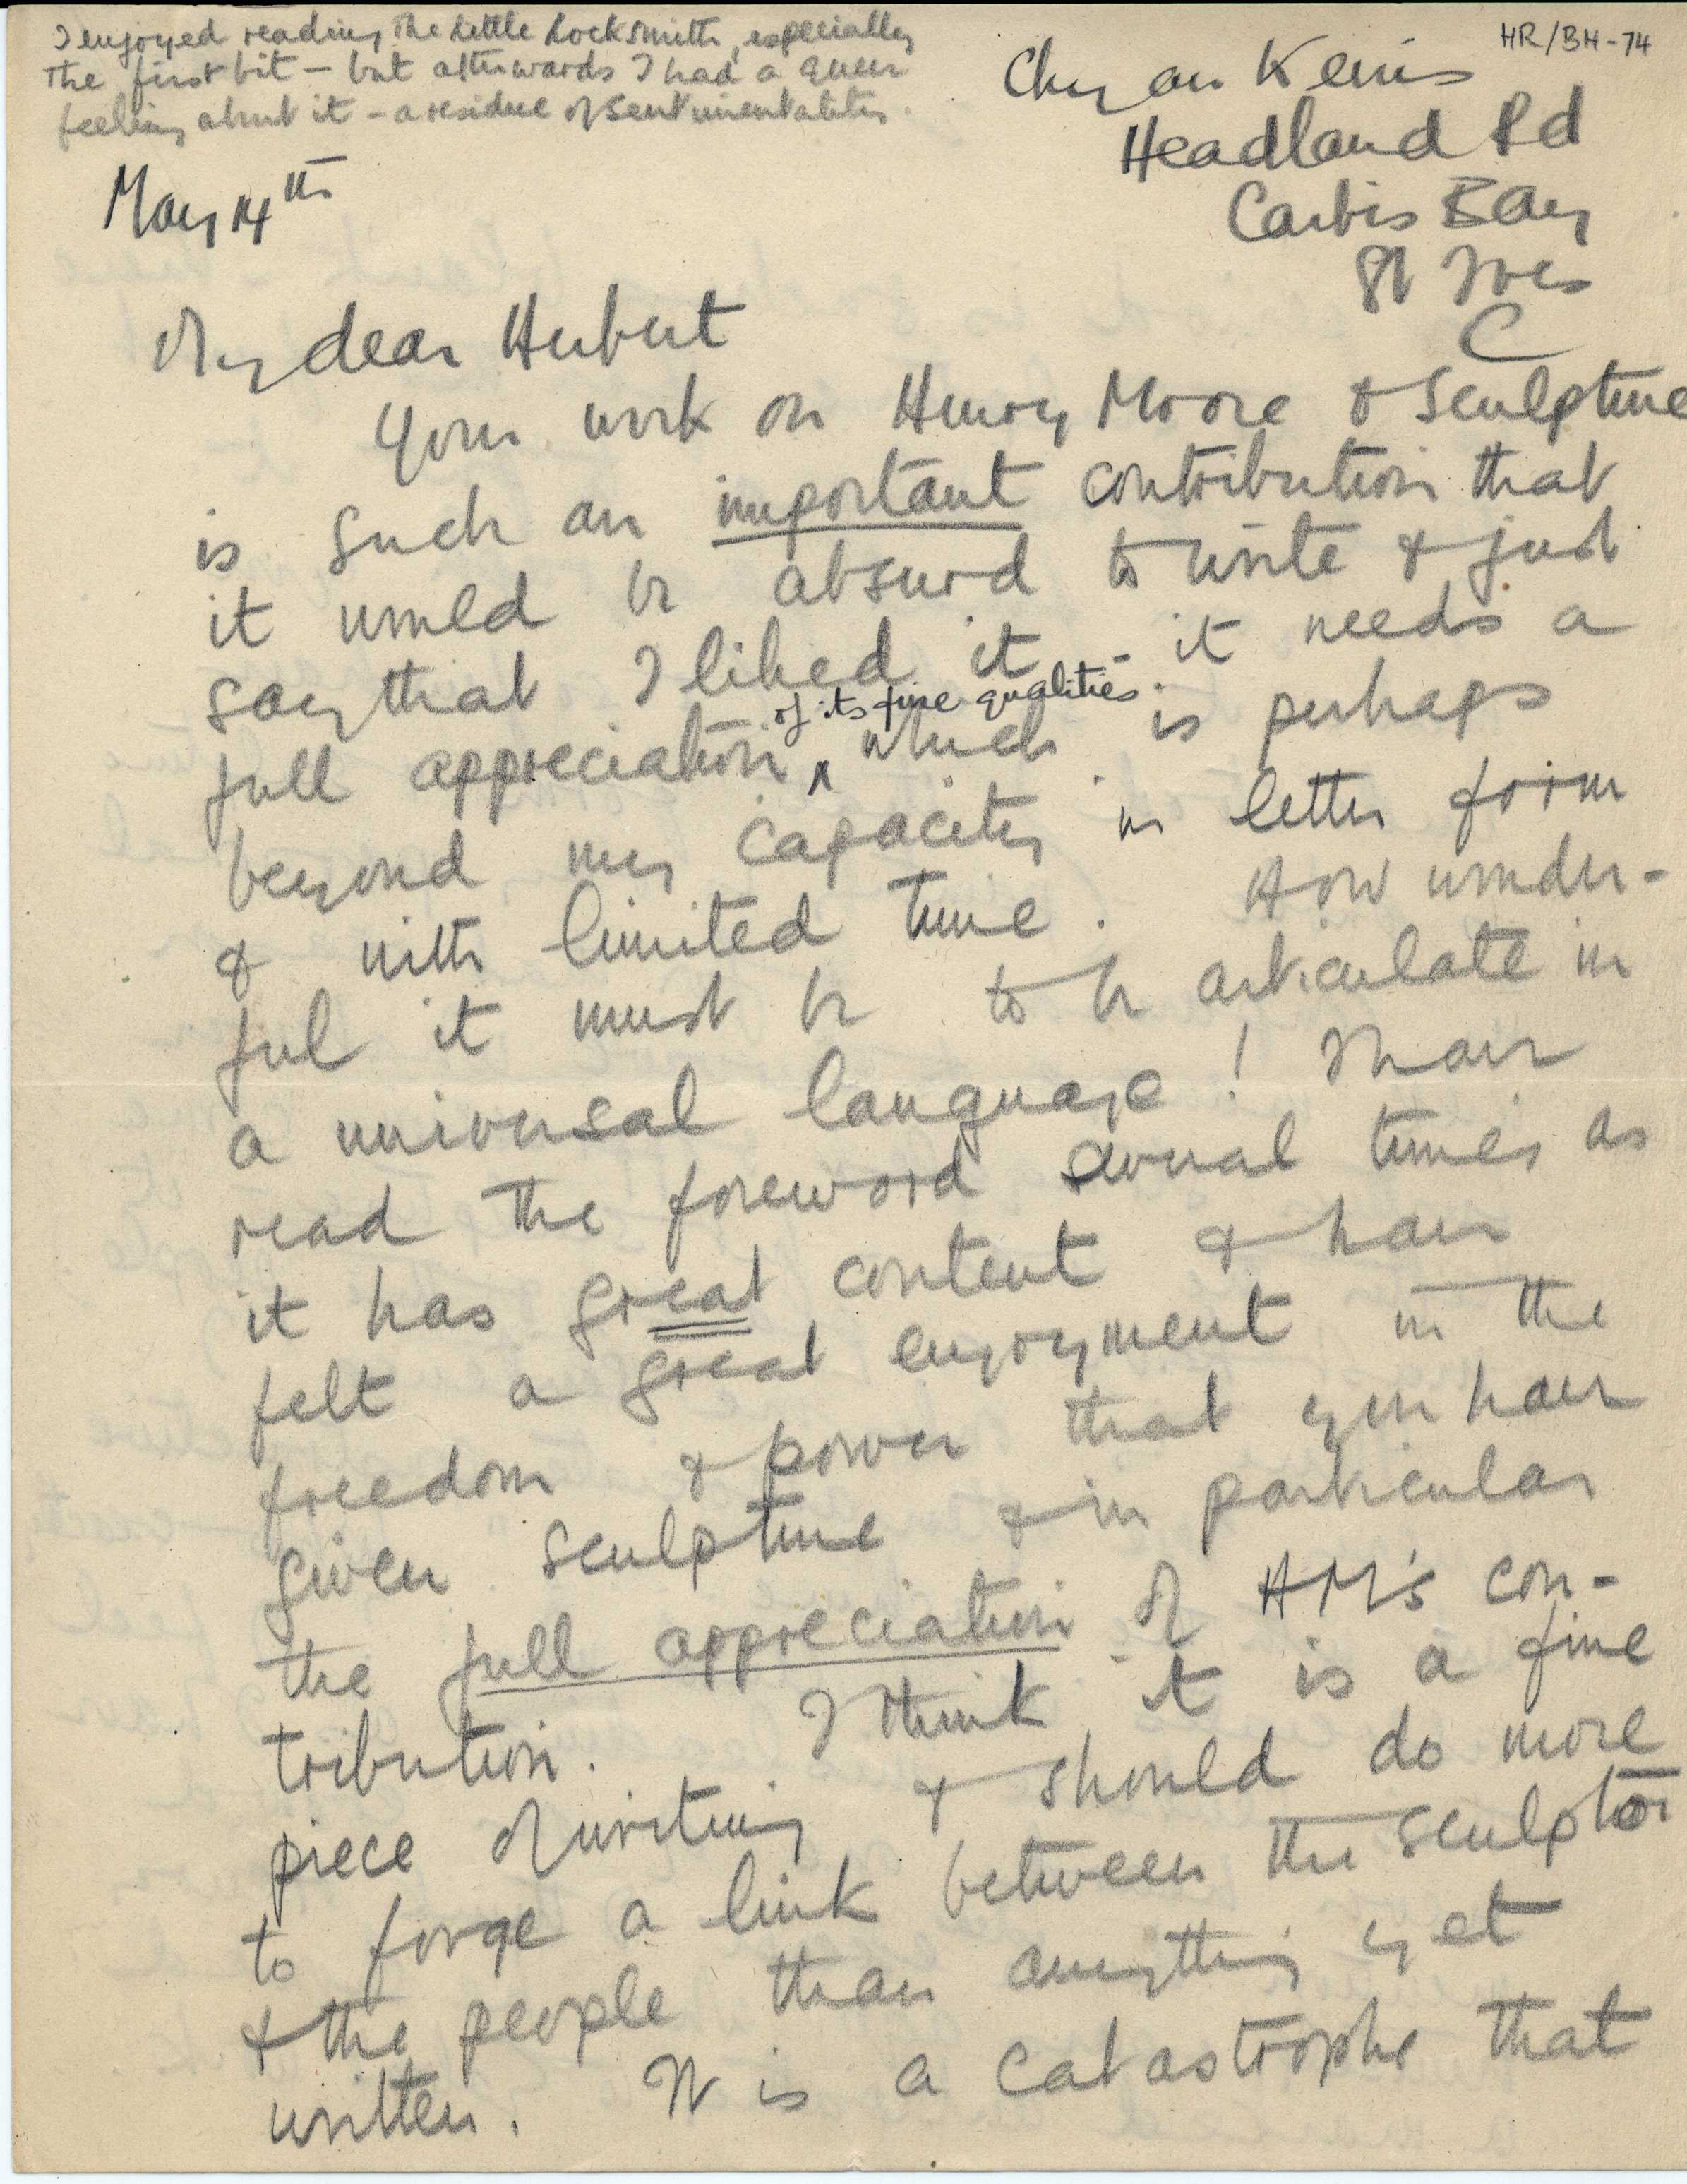 I enjoyed reading The Little Locksmith, especially
the first bit – but afterwards I had a queer
feeling about it – a residue of sentimentality.
HR/BH-74
Chy an Kerris
Headland Rd
Carbis Bay
St Ives
C
May 14th
My dear Herbert
Your work on Henry Moore & Sculpture
is such an important contribution that
it would be absurd to write & just
say that I liked it - it needs a
full appreciation of its fine qualities which is perhaps
beyond my capacity in letter form
& with limited time. How wonder-
ful it must be to be articulate in
a universal language! I have
read the foreword several times as
it has great content & have
felt a great enjoyment in the
freedom & power that you have
given sculpture & in particular
the full appreciation of HM's con-
tribution. I think it is a fine
piece of writing & should do more
to forge a link between the sculptor
& the people than anything yet
written. It is a catastrophe that